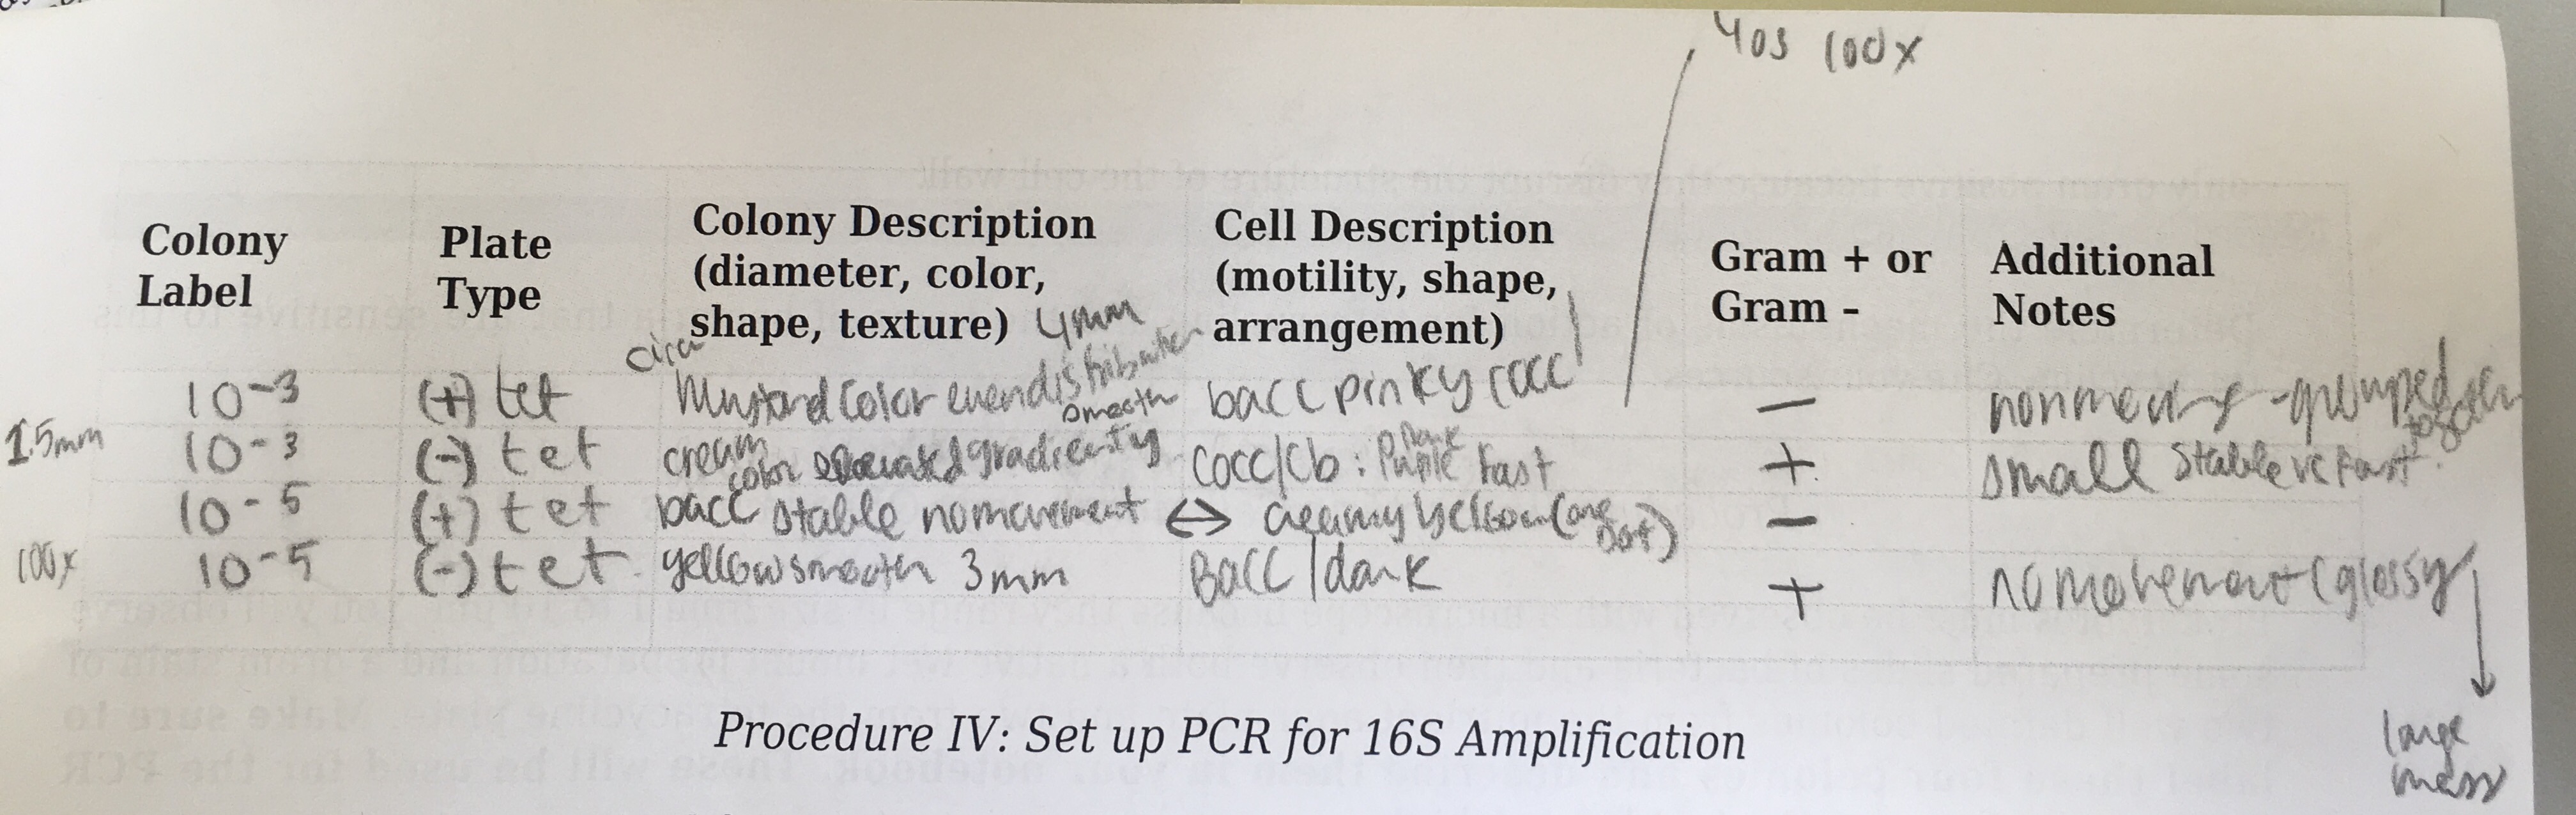 40s 100x
Colony Label
Plate Type
Colony Description (diameter, color, shape, texture) 4mm
Cell Description (motility, shape, arrangement)
Gram + or Gram -
Additional Notes
10-3 (+) tet circ Mustard Color even distribution smooth bacc pinky cocc − grouped together
1.5mm 10-3 (-) tet cream color Cocc/Cb: Purple Fast + small stable vs Fast.
10-5 (+) tet bacc stable no movement ↔ creamy yellow (one Dot) −
100x 10-5 (-) tet yellow smooth 3mm Bacc/dark + no movement (glossy
large
mass
Procedure IV: Set up PCR for 16S Amplification